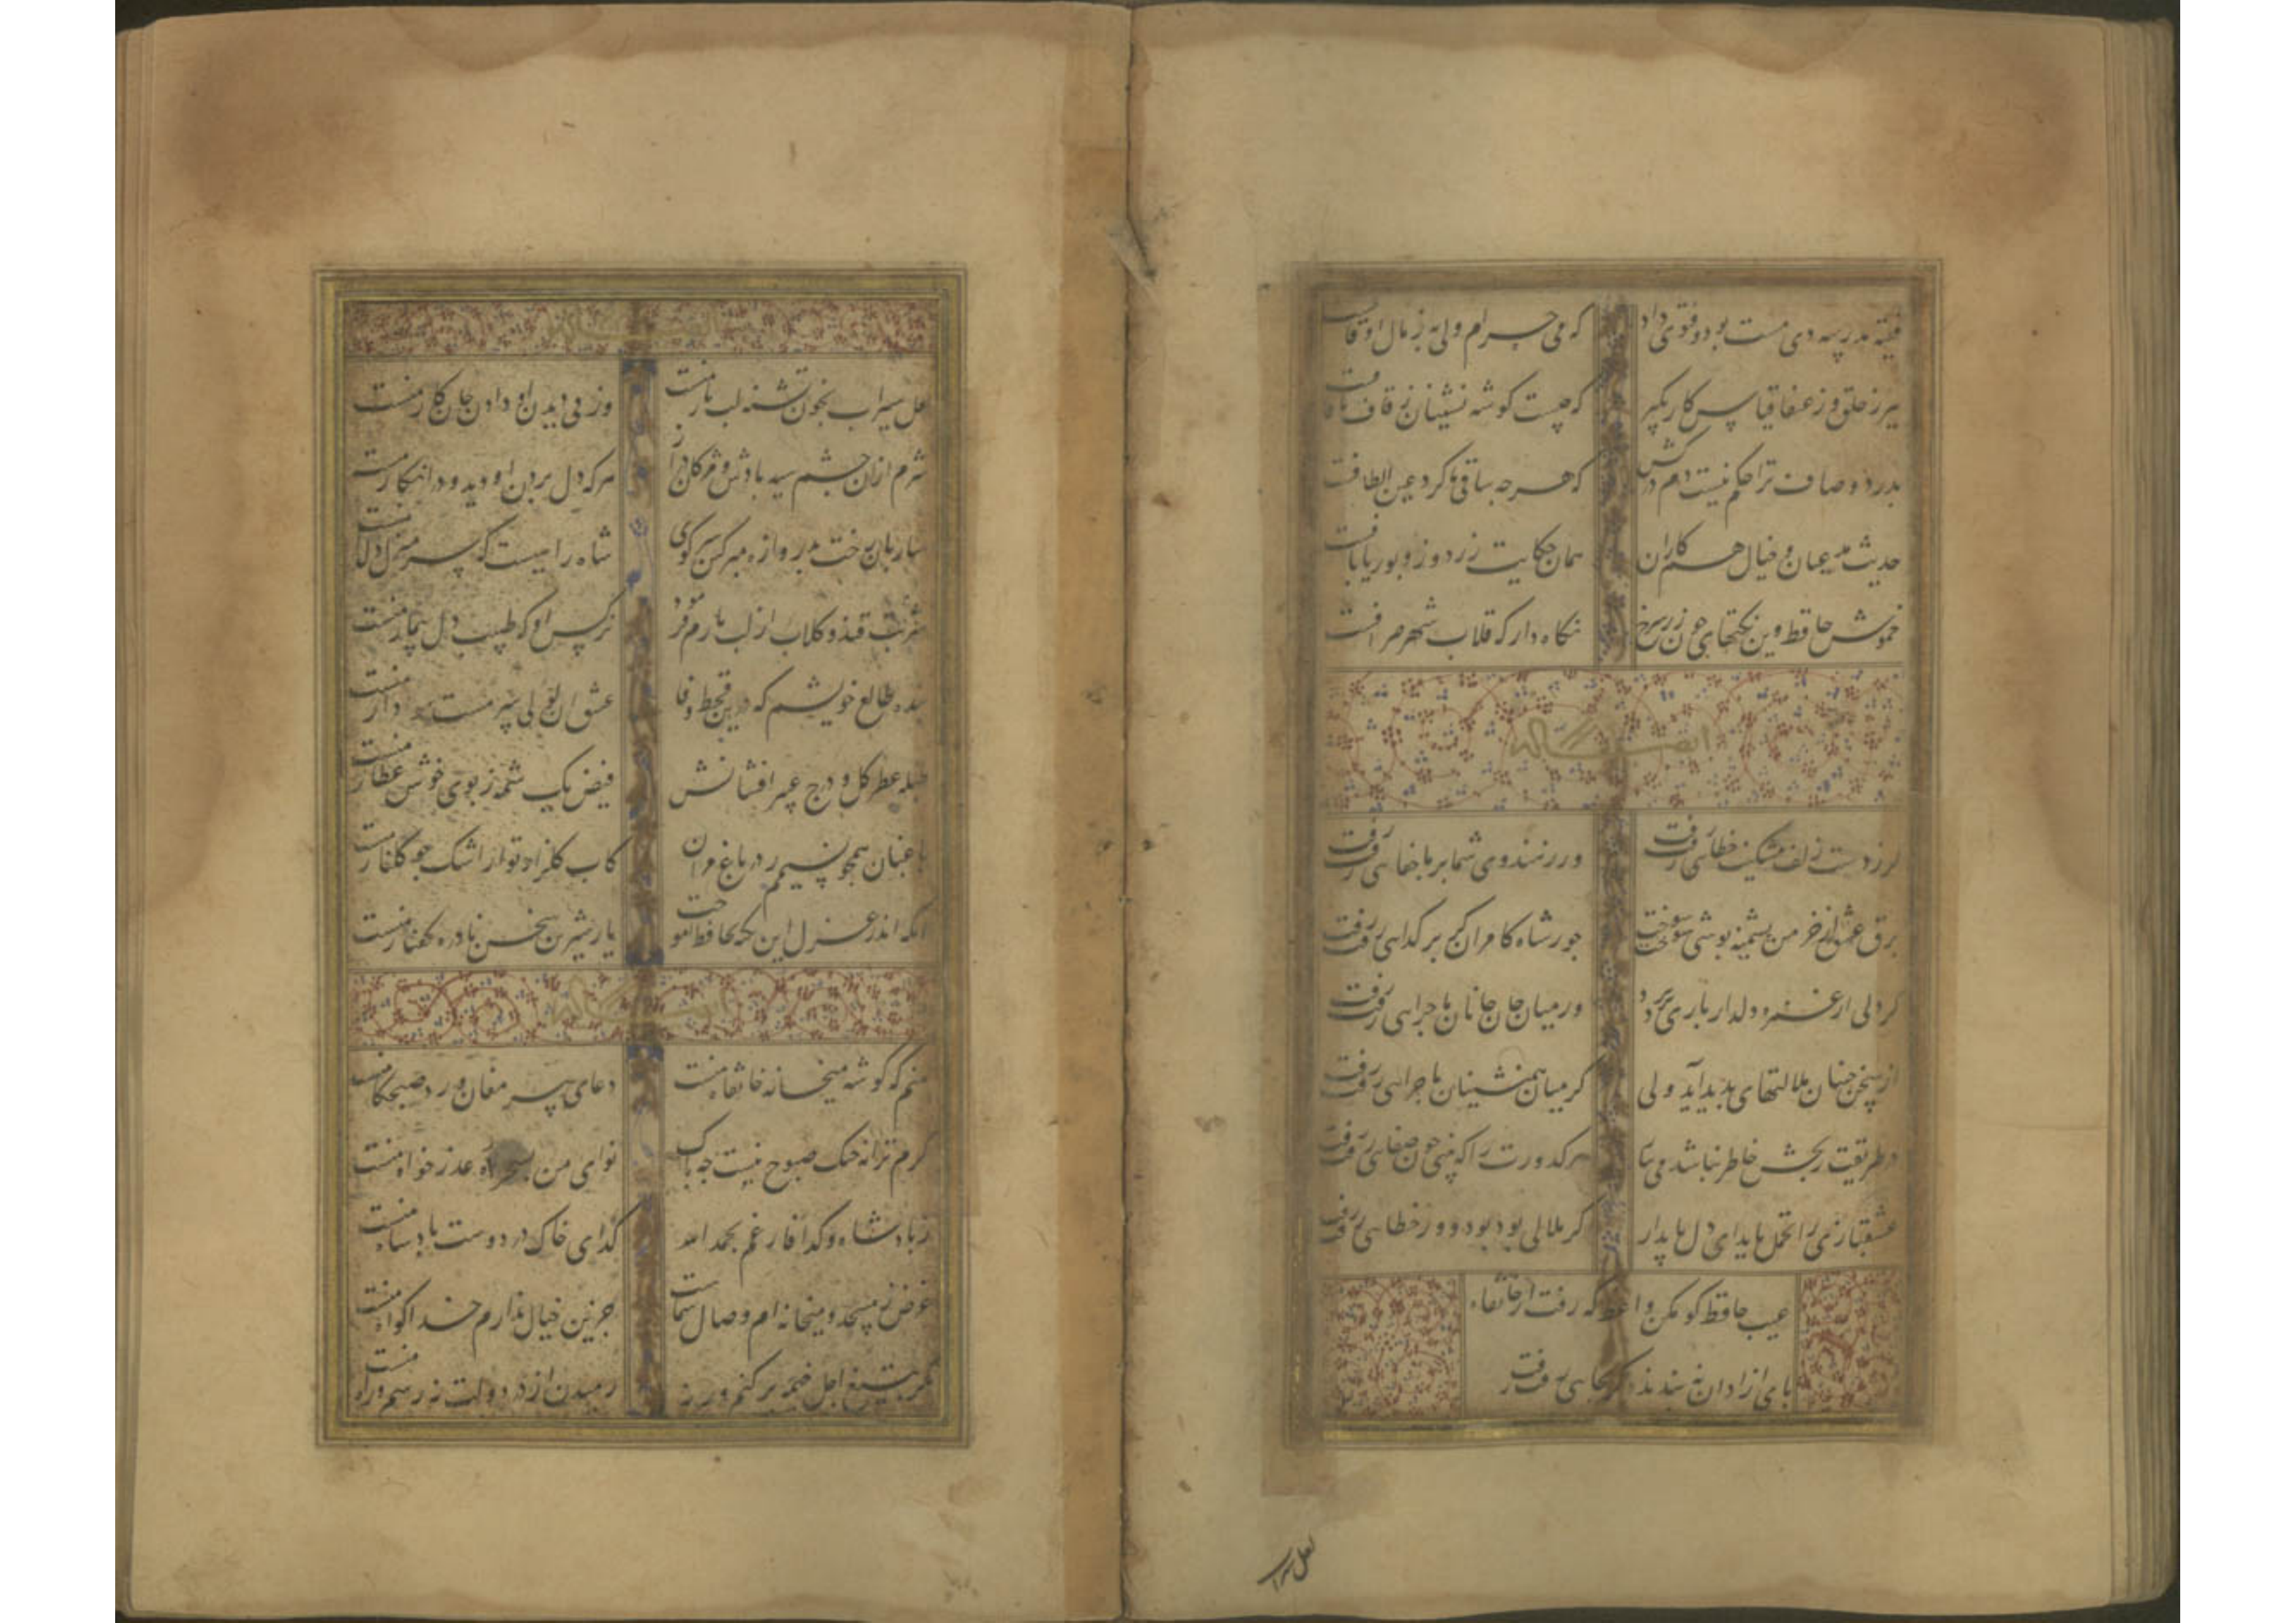 فقیه مدرسه دی مست بود و فتوی داد که می حرام ولی به ز مال اوقافست
ببر ز خلق و ز عنقا قیاس کار بگیر که صیت گوشه نشینان ز قاف تا قافست
بدرد و صاف ترا حکم نیست دم درکش که هرچه ساقی ما کرد عین الطافست
حدیث مدعیان و خیال همکاران همان حکایت زردوز و بوریابافست
خموش حافظ وین نکتهای چون زر سرخ نگاه دار که قلاب شهر صرافست
ایضاً له
گر ز دست زلف مشکینت خطایی رفت رفت ور ز هندوی شما بر ما جفایی رفت رفت
برق عشق ار خرمن پشمینه پوشی سوخت سوخت جور شاه کامران گر بر گدایی رفت رفت
گر دلی از غمزه دلدار باری برد برد ور میان جان و جانان ماجرایی رفت رفت
از سخن چینان ملالتهای پدید آید ولی گر میان همنشینان ماجرایی رفت رفت
در طریقت رنجش خاطر نباشد می بیا هر کدورت را که بینی چون صفایی رفت رفت
عشقبازی را تحمل باید ای دل پایدار گر ملالی بود بود و ور خطایی رفت رفت
عیب حافظ گو مکن واعظ که رفت از خانقاه
پای آزادان نه بندند گر بجایی رفت رفت
لعل سیرا
لعل سیراب بخون تشنه لب یار منست وز پی دیدن او دادن جان کار منست
شرم از آن چشم سیه بادش و مژگان دراز هرکه دل بردن او دید و در انکار منست
ساربان رخت بدروازه مبر کین سر کوی شاه راهیست که سر منزل دلدار منست
شربت قند و گلاب از لب یارم فرمود نرگس او که طبیب دل بیمار منست
بنده طالع خویشم که درین قحط وفا عشق آن لولی سرمست خریدار منست
طبله عطر گل و درج عبیر افشانش فیض یک شمه ز بوی خوش عطار منست
باغبان همچو نسیمم ز در باغ مران کاب گلزار تو از اشک چو گلنار منست
آنکه اندر غزل این نکته بحافظ آموخت یار شیرین سخن نادره گفتار منست
ایضاً له
منم که گوشه میخانه خانقاه منست دعای پیر مغان ورد صبحگاه منست
گرم ترانه چنگ صبوح نیست چه باک نوای من بسحر آه عذر خواه منست
ز پادشاه و گدا فارغم بحمد الله گدای خاک در دوست پادشاه منست
غرض ز مسجد و میخانه ام وصال شماست جز این خیال ندارم خدا گواه منست
مگر بتیغ اجل خیمه بر کنم ور نه رمیدن از در دولت نه رسم و راه منست